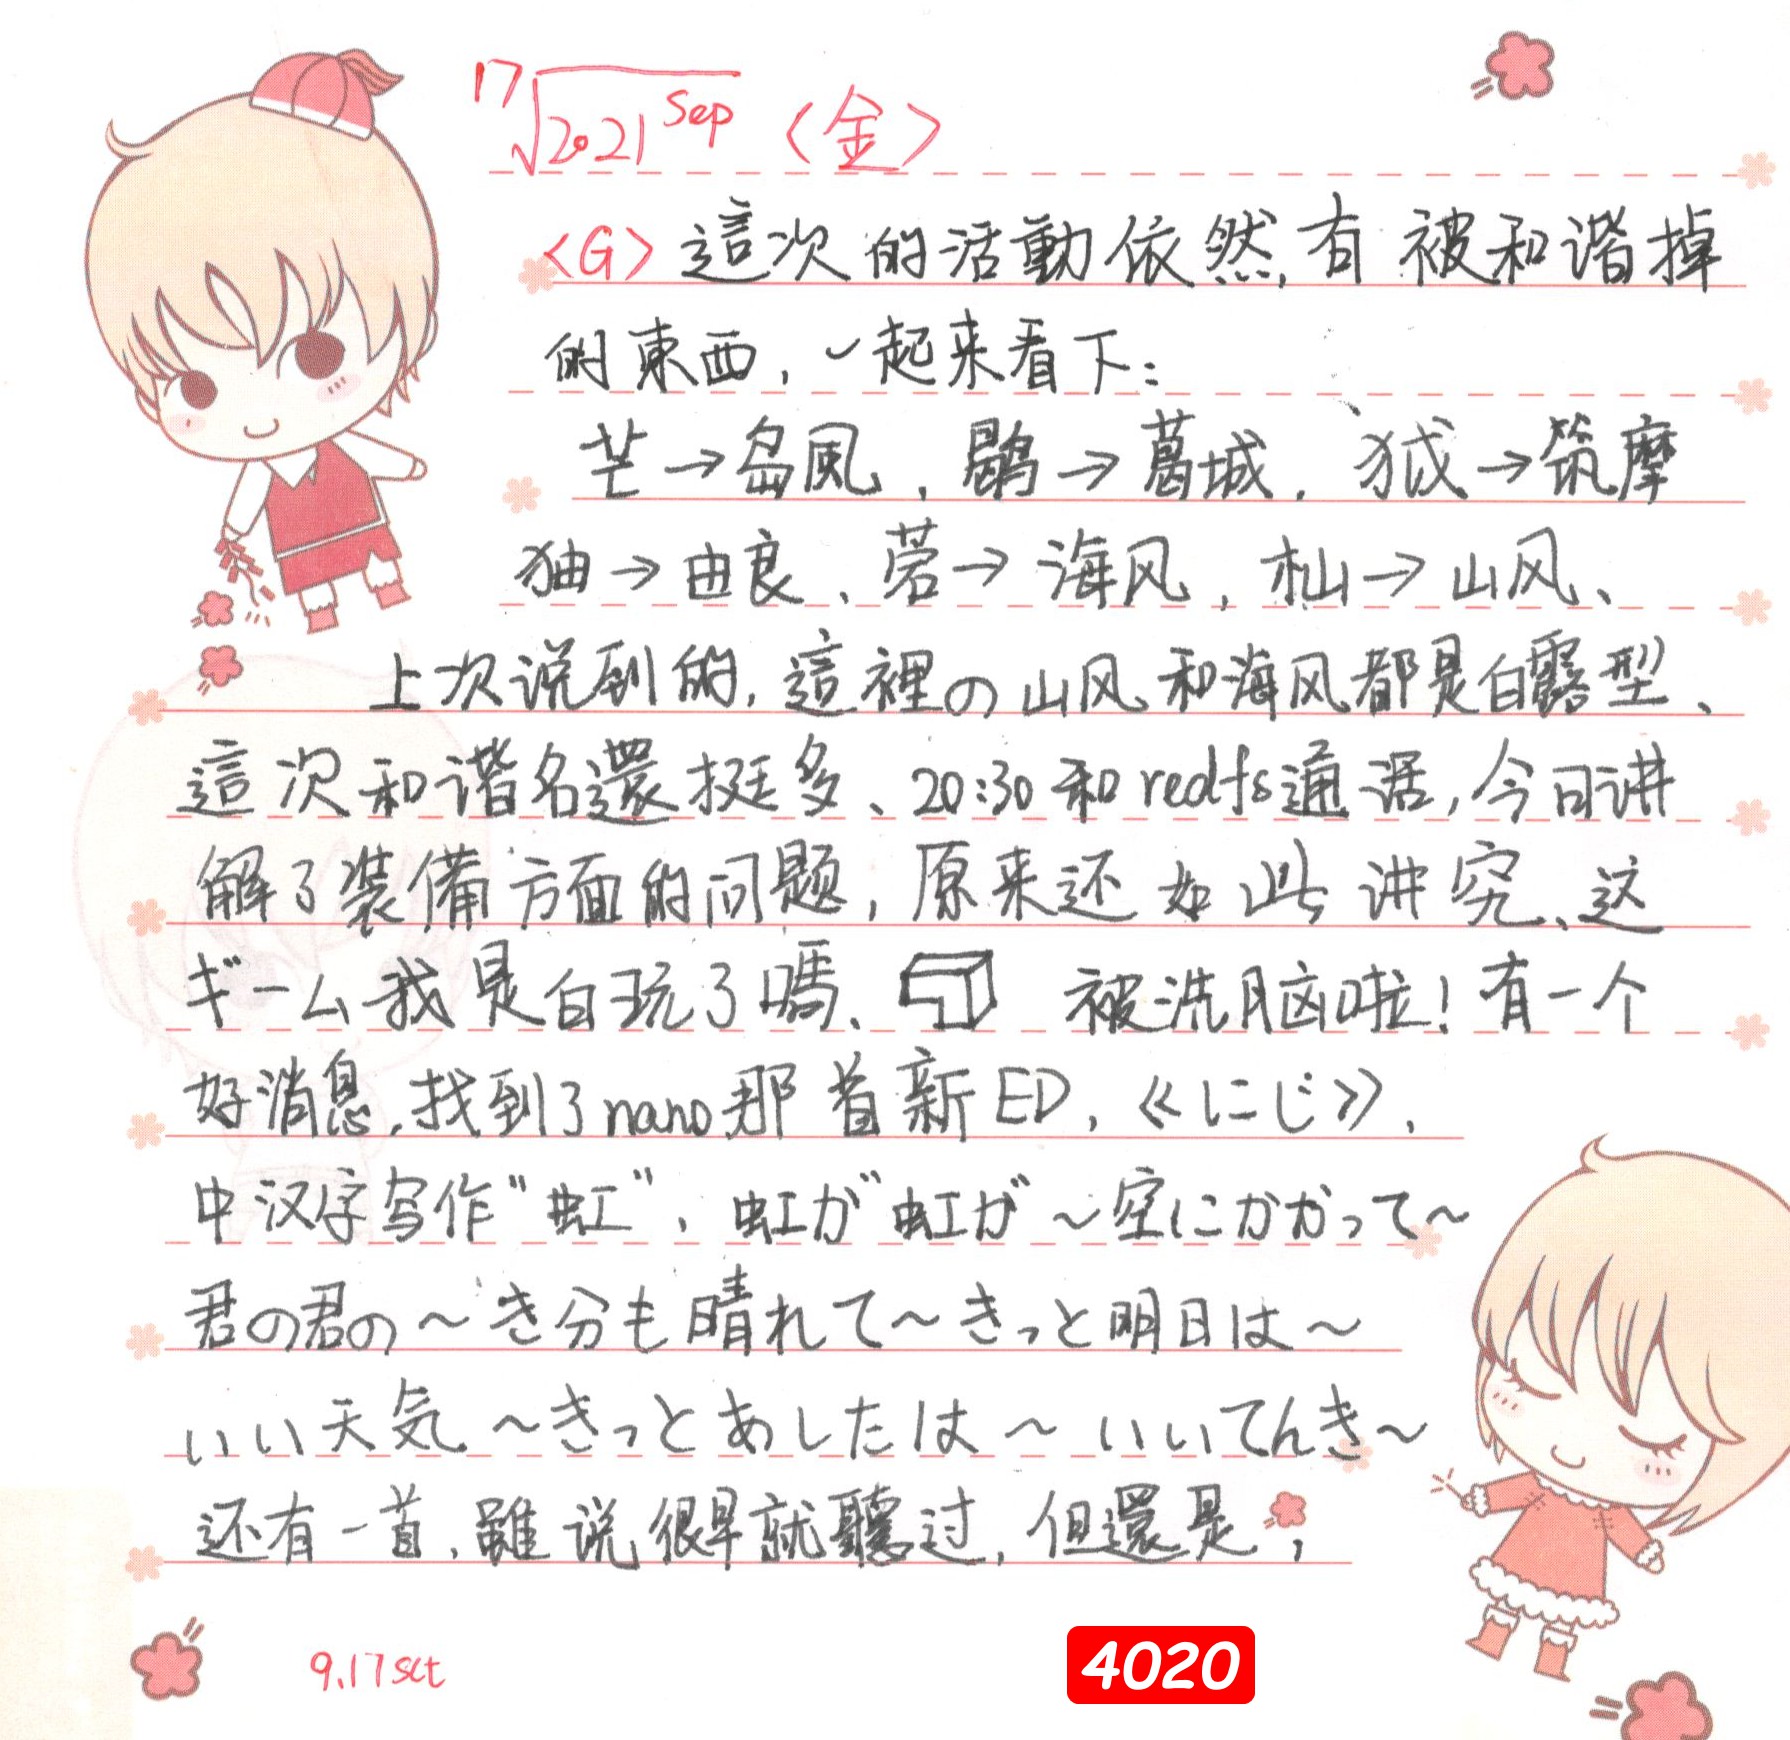 17√2021 Sep 〈金〉
〈G〉這次的活動依然,有被和谐掉
的東西,一起来看下:
芒→岛風,鶡→葛城,狘→筑摩
狖→由良、菪→海风,杣→山风、
上次说到的,這裡の山风和海风都是白露型、
這次和谐名還挺多、20:30和redfs通话,今日讲
解了装備方面的问题,原来还如此讲究、这
ギーム我是白玩了嗎、 被洗脑啦!有一个
好消息,找到了nano那首新ED,《にじ》,
中汉字写作"虹",虹が"虹が～空にかかって～
君の君の～き分も晴れて～きっと明日は～
いい天気～きっとあしたは～いいてんき～
还有一首,雖说很早就聽过,但還是,
9.17sct
4020